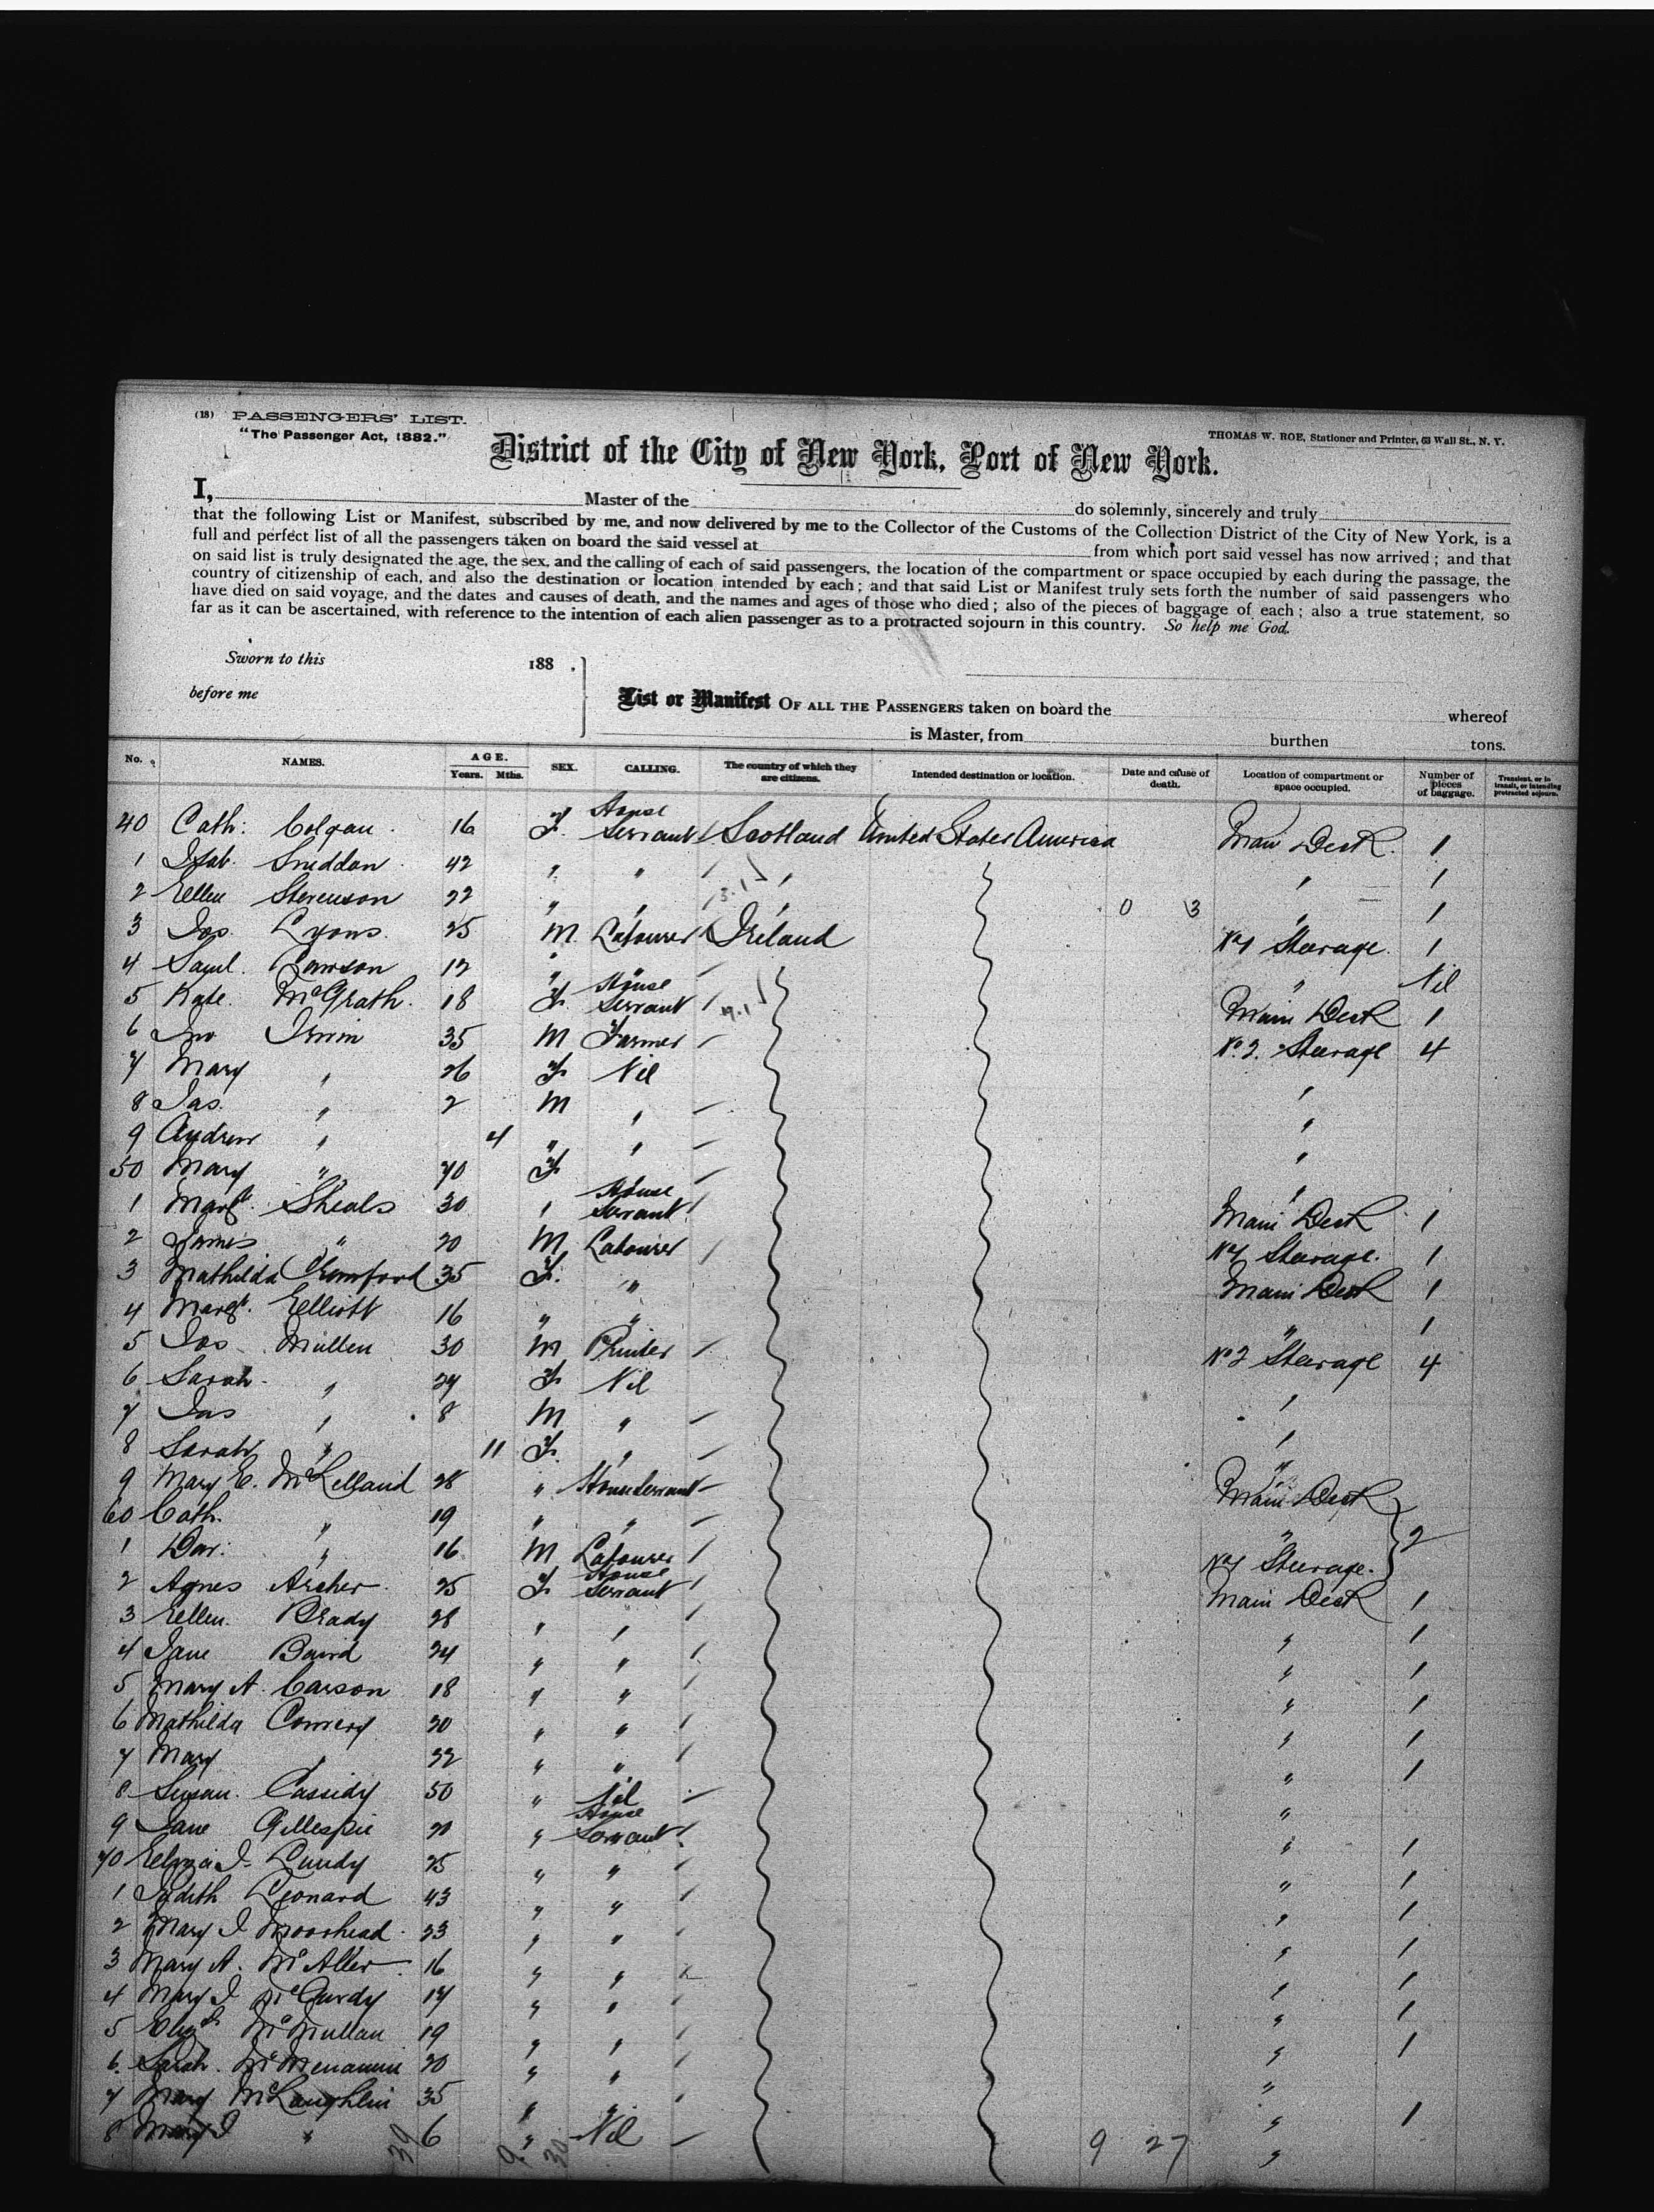 (18) PASSENGERS' LIST.
"The Passenger Act, 1882."
THOMAS W. ROE, Stationer and Printer, 63 Wall St., N. Y.
District of the City of New York, Port of New York.
I, Master of the do solemnly, sincerely and truly
that the following List or Manifest, subscribed by me, and now delivered by me to the Collector of the Customs of the Collection District of the City of New York, is a
full and perfect list of all the passengers taken on board the said vessel at from which port said vessel has now arrived; and that
on said list is truly designated the age, the sex, and the calling of each of said passengers, the location of the compartment or space occupied by each during the passage, the
country of citizenship of each, and also the destination or location intended by each; and that said List or Manifest truly sets forth the number of said passengers who
have died on said voyage, and the dates and causes of death, and the names and ages of those who died; also of the pieces of baggage of each; also a true statement, so
far as it can be ascertained, with reference to the intention of each alien passenger as to a protracted sojourn in this country. So help me God.
Sworn to this 188 .
before me
List or Manifest OF ALL THE PASSENGERS taken on board the whereof
is Master, from burthen tons.
No. NAMES. AGE. Years. Mths. SEX. CALLING. The country of which they are citizens. Intended destination or location. Date and cause of death. Location of compartment or space occupied. Number of pieces of baggage. Transient, or in transit, or intending protracted sojourn.
40 Cath: Colgan 16 F. House Servant Scotland United States America Main Deck 1
1 Isab. Sneddon 42 " " " " 1
2 Ellen Stevenson 22 " " " 0 3 " 1
3 Jos. Lyons 25 M. Labourer Ireland No 1 Steerage 1
4 Saml. Lawson 12 " " " Nil
5 Kate McGrath 18 F. House Servant Main Deck 1
6 Jno Irwin 35 M Farmer No. 2. Steerage 4
7 Mary " 26 F. Nil "
8 Jas. " 2 M " "
9 Andrew " 4 " " "
50 Mary " 70 F. "
1 Margt. Sheals 30 " House Servant Main Deck 1
2 James " 20 M Labourer No 1 Steerage 1
3 Mathilda Crawford 35 F. " Main Deck 1
4 Margt. Elliott 16 " " " 1
5 Jos Mullen 30 M Printer No 2 Steerage 4
6 Sarah " 27 F. Nil "
7 Jas " 8 M " "
8 Sarah " 11 F. " "
9 Mary E. McLelland 28 " House Servant Main Deck
60 Cath. " 19 " " " 2
1 Dav: " 16 M Labourer No 1 Steerage
2 Agnes Archer 25 F. House Servant Main Deck 1
3 Ellen Brady 28 " " " 1
4 Jane Baird 24 " " " 1
5 Mary A. Carson 18 " " " 1
6 Mathilda Convery 20 " " " 1
7 Mary " 22 " " " 1
8 Susan Cassidy 50 " Nil "
9 Jane Gillespie 20 " House Servant " 1
70 Lundy 25 " " " 1
1 Judith Leonard 43 " " " 1
2 Mary J Moorhead 23 " " " 1
3 Mary A. 16 " " " 1
4 Mary J McCurdy 17 " " " 1
5 Elizth McMullan 19 " " " 1
6 Sarah McMenamin 20 " " "
7 Mary McLaughlin 35 " " " 1
8 Mary J " 6 " Nil "
9 27